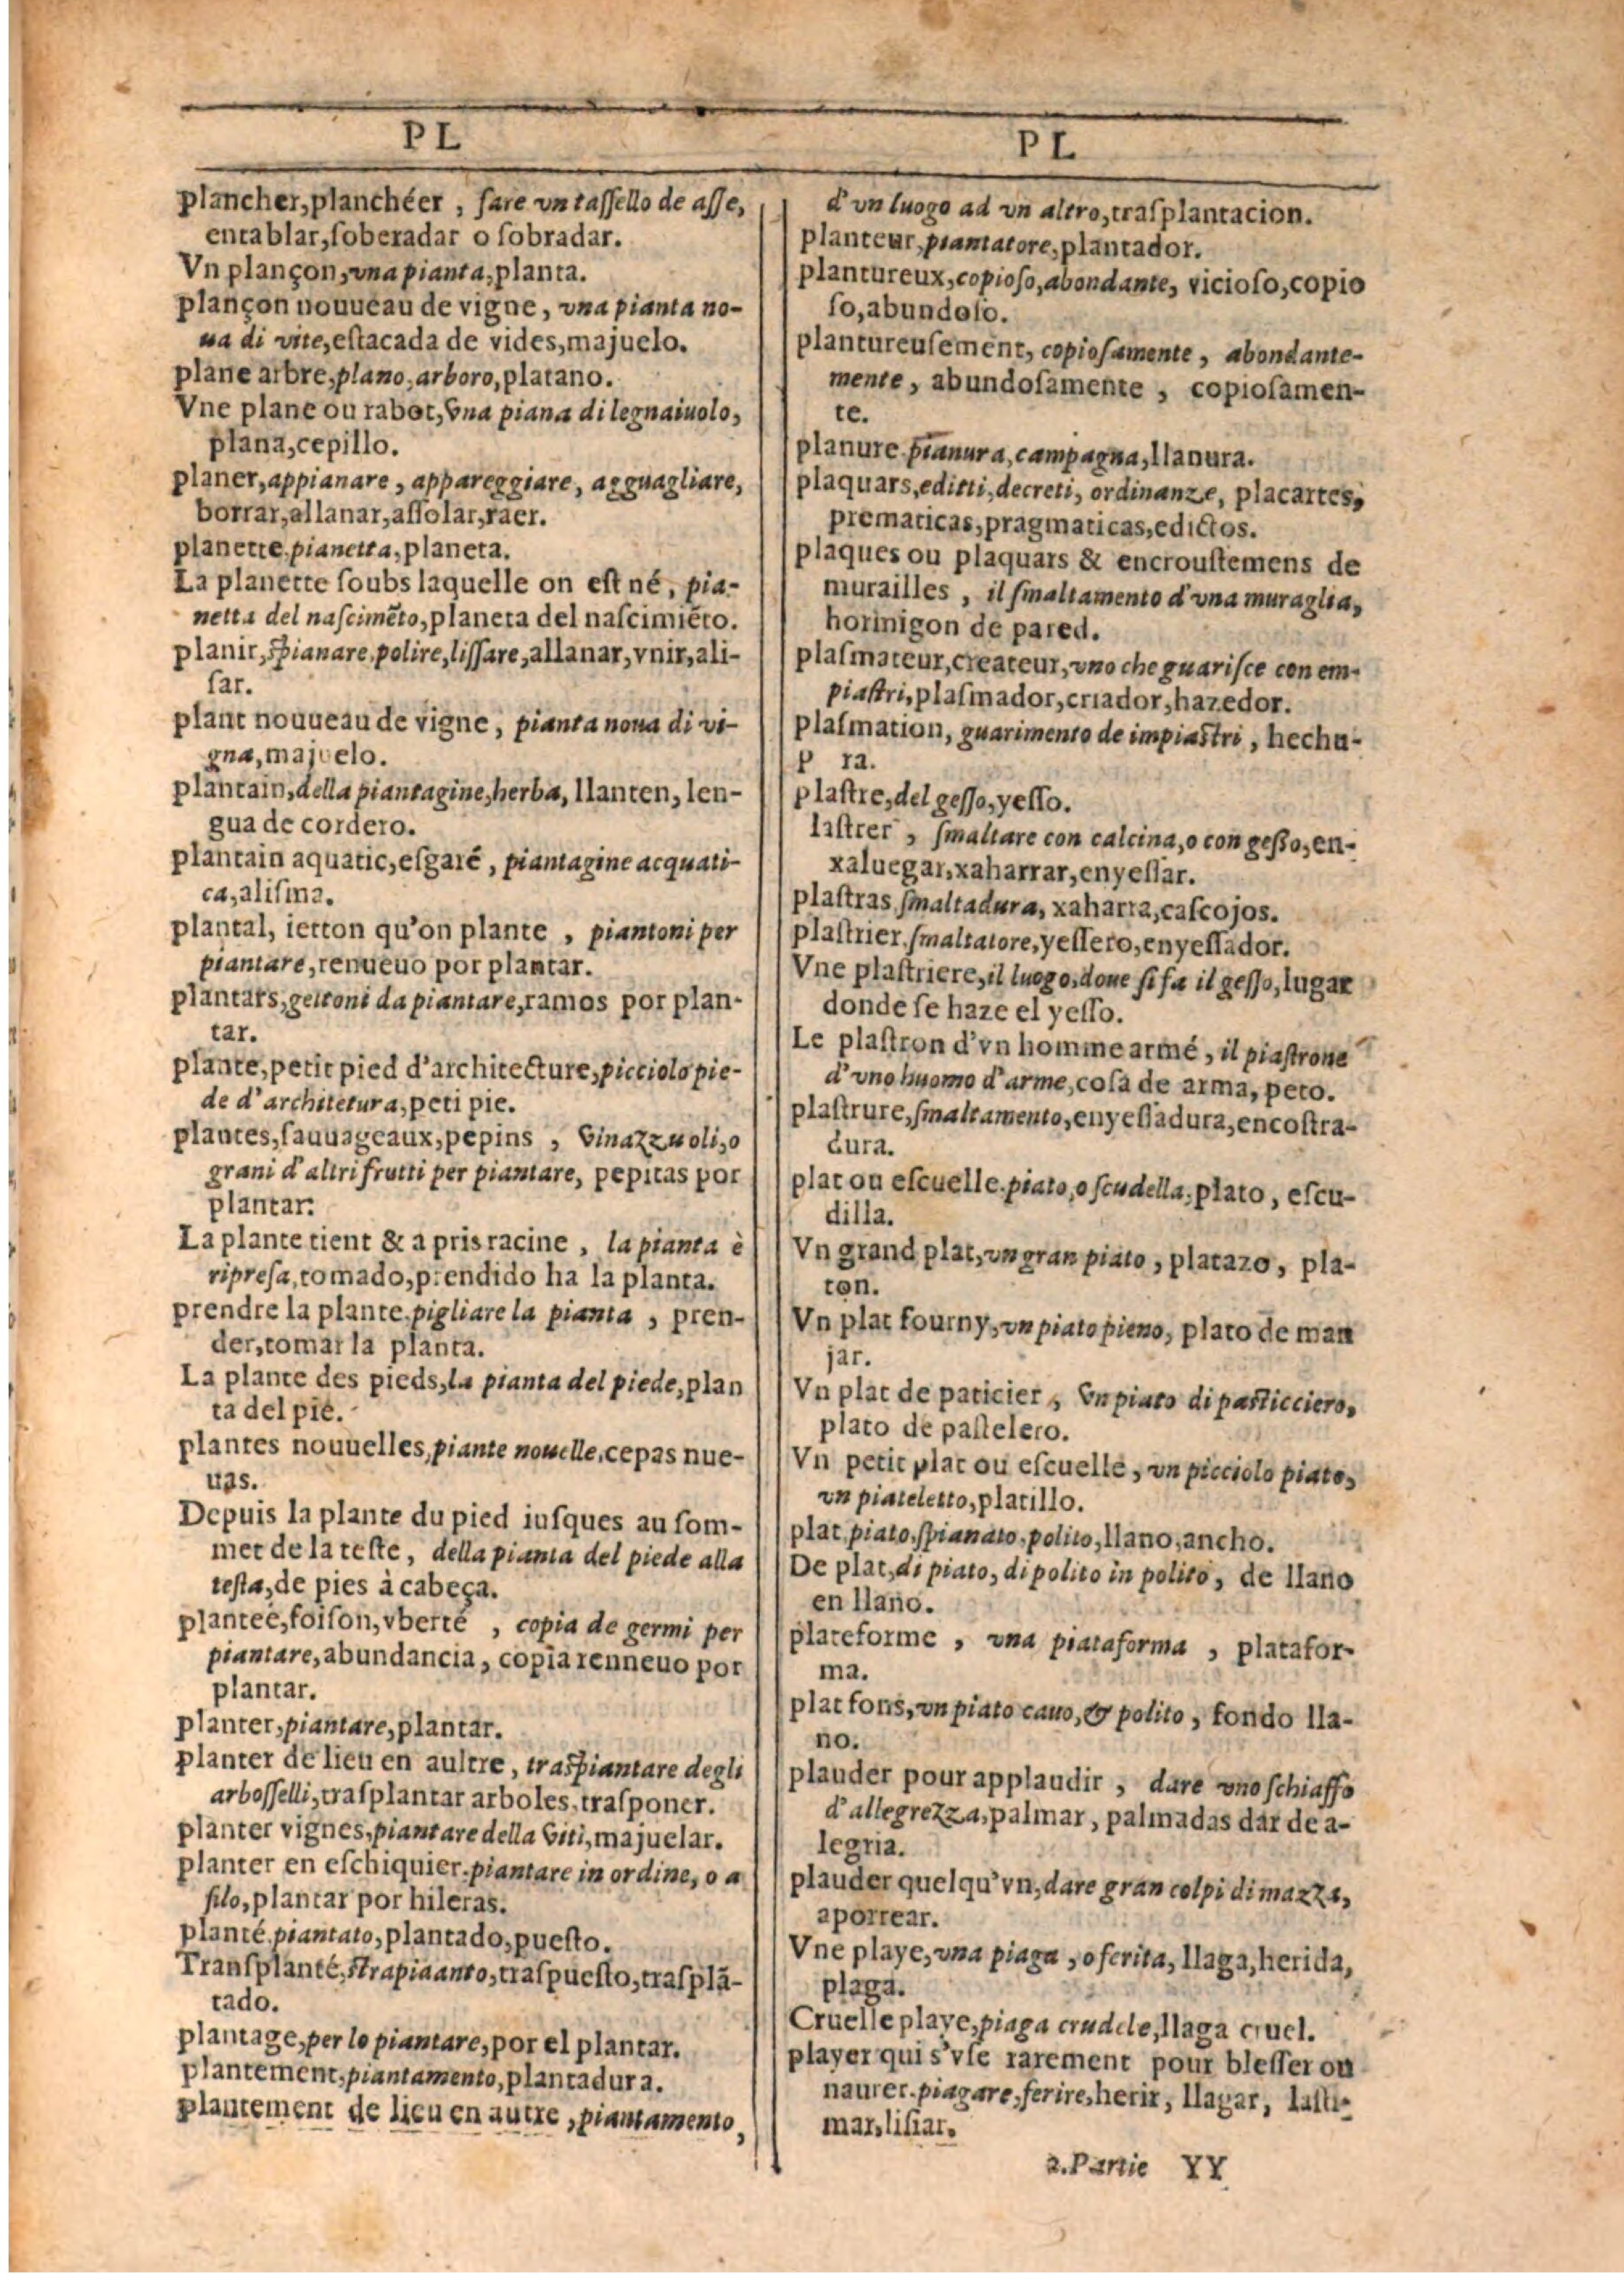 PL
plancher,planchéer , fare vn taſſello de aſſe,
entablar,ſoberadar o ſobradar.
Vn plançon,vna pianta,planta.
plançon nouueau de vigne, vna pianta no-
ua di vite,eſtacada de vides,majuelo.
plane arbre,plano,arboro,platano.
Vne plane ou rabot,vna piana di legnaiuolo,
plana,cepillo.
planer,appianare, appareggiare, agguagliare,
borrar,allanar,aſſolar,raer.
planette.pianetta,planeta.
La planette ſoubs laquelle on eſt né, pia-
netta del naſcimẽto,planeta del naſcimiẽto.
planir,ſpianare,polire,liſſare,allanar,vnir,ali-
ſar.
plant nouueau de vigne, pianta noua di vi-
gna,majuelo.
plantain,della piantagine,herba, llanten, len-
gua de cordero.
plantain aquatic,eſgaré, piantagine acquati-
ca,aliſma.
plantal, ietton qu'on plante , piantoni per
piantare,renueuo por plantar.
plantars,gettoni da piantare,ramos por plan-
tar.
plante,petit pied d'architecture,picciolo pie-
de d'architetura,peti pie.
plantes,ſauuageaux,pepins , vinazzuoli,o
grani d'altri frutti per piantare, pepitas por
plantar.
La plante tient & a pris racine , la pianta è
ripreſa,tomado,prendido ha la planta.
prendre la plante.pigliare la pianta , pren-
der,tomar la planta.
La plante des pieds,la pianta del piede,plan
ta del pie.
plantes nouuelles,piante nouelle,cepas nue-
uas.
Depuis la plante du pied iuſques au ſom-
met de la teſte, della pianta del piede alla
teſta,de pies à cabeça.
planteé,foiſon,vberté , copia de germi per
piantare,abundancia, copia renneuo por
plantar.
planter,piantare,plantar.
planter de lieu en aultre, traſpiantare degli
arboſſelli,traſplantar arboles,traſponer.
planter vignes,piantare della viti,majuelar.
planter en eſchiquier.piantare in ordine, o a
filo,plantar por hileras.
planté.piantato,plantado,pueſto.
Tranſplanté,ſtrapiaanto,traſpueſto,traſplã-
tado.
plantage,per lo piantare,por el plantar.
plantement,piantamento,plantadura.
plantement de lieu en autre,piantamento,
PL
d'vn luogo ad vn altro,traſplantacion.
planteur,piantatore,plantador.
plantureux,copioſo,abondante, vicioſo,copio
ſo,abundoſo.
plantureuſement, copioſamente, abondante-
mente, abundoſamente , copioſamen-
te.
planure.pianura,campagna,llanura.
plaquars,editti,decreti, ordinanze, placartes,
prematicas,pragmaticas,edictos.
plaques ou plaquars & encrouſtemens de
murailles , il ſmaltamento d'vna muraglia,
horinigon de pared.
plaſmateur,createur,vno che guariſce con em-
piaſtri,plaſmador,criador,hazedor.
plaſmation, guarimento de impiaſtri, hechu-
p ra.
plaſtre,del geſſo,yeſſo.
laſtrer , ſmaltare con calcina,o con geſſo,en-
xaluegar,xaharrar,enyeſſar.
plaſtras.ſmaltadura, xaharra,caſcojos.
plaſtrier.ſmaltatore,yeſſero,enyeſſador.
Vne plaſtriere,il luogo,doue ſi fa il geſſo,lugar
donde ſe haze el yeſſo.
Le plaſtron d'vn homme armé, il piaſtrone
d'vno huomo d'arme,coſa de arma, peto.
plaſtrure,ſmaltamento,enyeſſadura,encoſtra-
dura.
plat ou eſcuelle.piato,o ſcudella,plato, eſcu-
dilla.
Vn grand plat,vn gran piato, platazo, pla-
ton.
Vn plat fourny,vn piato pieno, plato de man
jar.
Vn plat de paticier, vn piato di paſticciero,
plato de paſtelero.
Vn petit plat ou eſcuelle, vn picciolo piato,
vn piateletto,platillo.
plat.piato,ſpianato,polito,llano,ancho.
De plat,di piato, di polito in polito, de llano
en llano.
plateforme , vna piataforma , platafor-
ma.
plat fons,vn piato cauo,& polito, fondo lla-
no.
plauder pour applaudir , dare vno ſchiaffo
d'allegrezza,palmar, palmadas dar de a-
legria.
plauder quelqu'vn,dare gran colpi di mazza,
aporrear.
Vne playe,vna piaga, o ferita, llaga,herida,
plaga.
Cruelle playe,piaga crudele,llaga cruel.
player qui s'vſe rarement pour bleſſer ou
naurer.piagare,ferire,herir, llagar, laſti-
mar,liſiar.
2.Partie YY